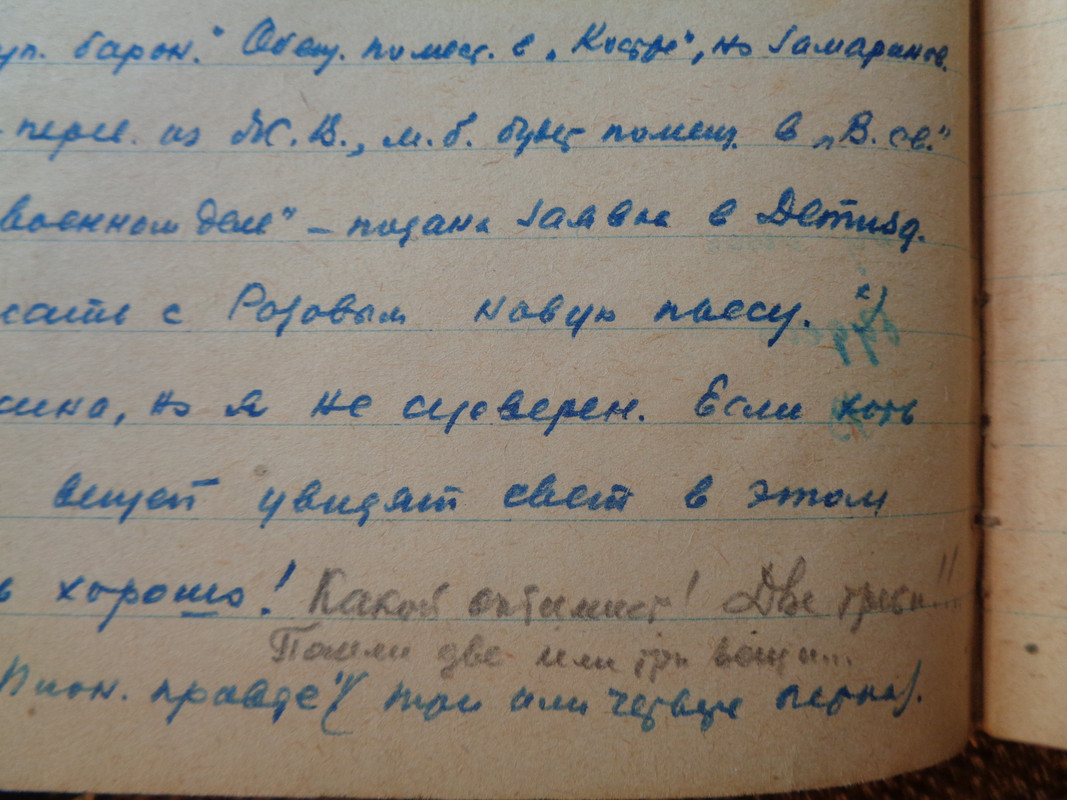 уп. барон." Обещ. помест. в „Костре", но Замаринов.
перев. из Ж.В., м.б. будет помещ. в „В. св."
военном деле" – подана заявка в Детизд.
сать с Розовым новую пьесу. х)
сина, но я не суеверен. Если хоть
вещей увидят свет в этом
ь хорошо! Какой оптимист! Две трети!!!
Пошли две или три вещи...
Пион. правде" (три или четыре песни).